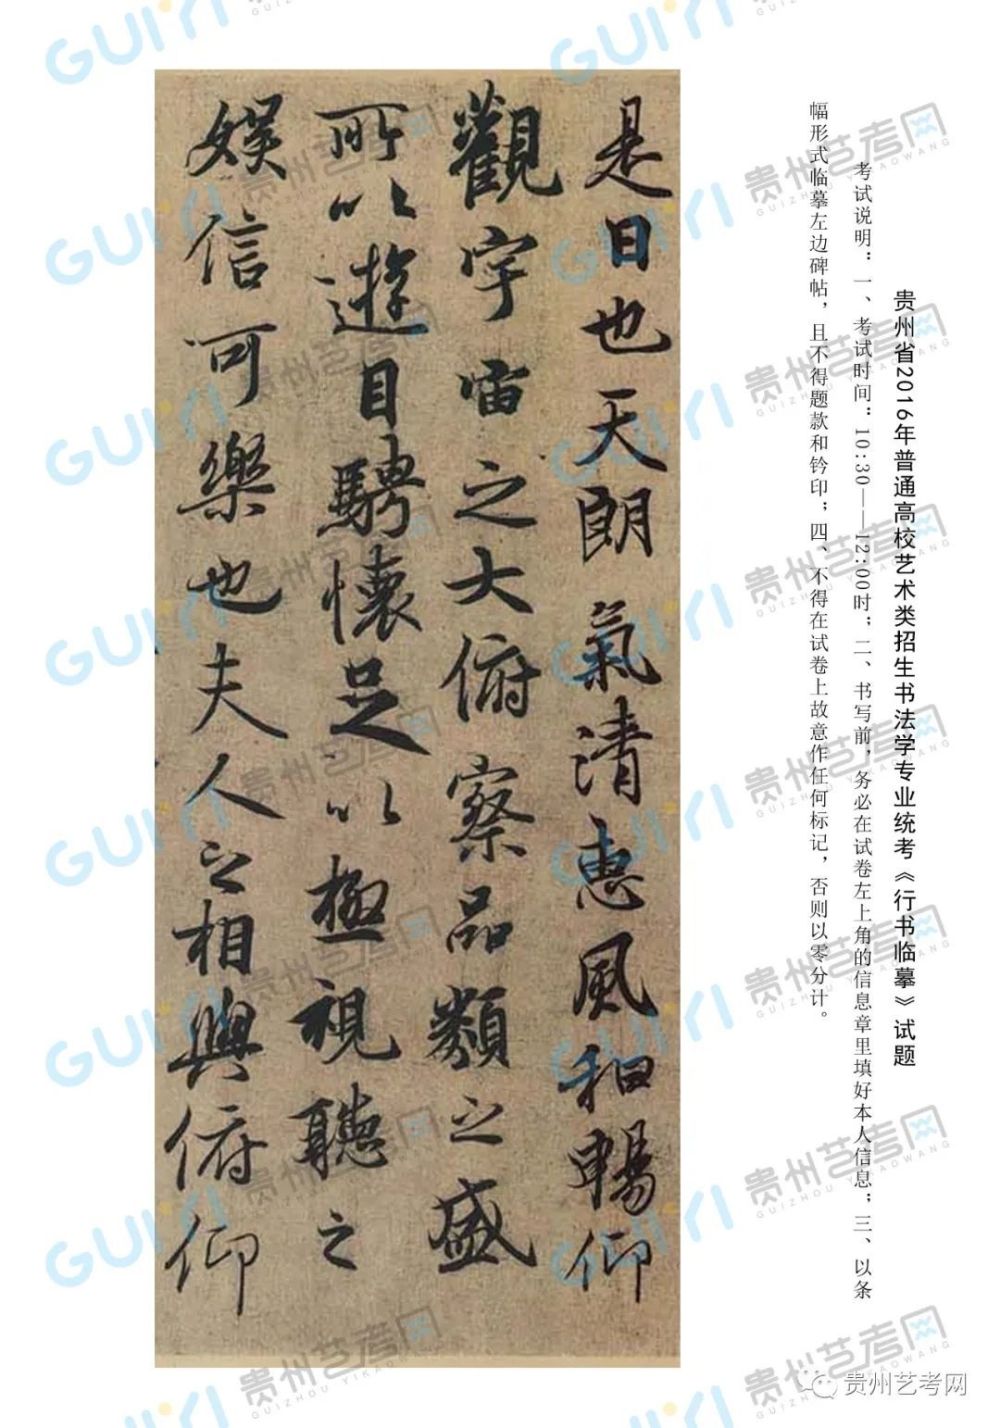 贵州省2016年普通高校艺术类招生书法学专业统考《行书临摹》试题
考试说明：一、考试时间：10:30——12:00时；二、书写前，务必在试卷左上角的信息章里填好本人信息；三、以条
幅形式临摹左边碑帖，且不得题款和钤印；四、不得在试卷上故意作任何标记，否则以零分计。
是日也天朗氣清惠風和暢仰
觀宇宙之大俯察品類之盛
所以遊目騁懷足以極視聽之
娛信可樂也夫人之相與俯仰
GUIYI
贵州艺考网
GUIZHOU YIKAOWANG
贵州艺考网